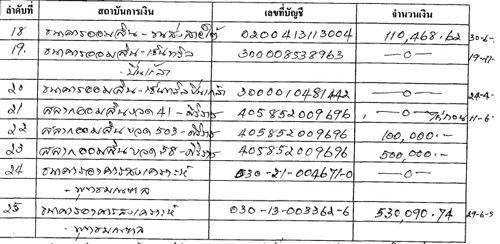 ลำดับที่ สถาบันการเงิน เลขที่บัญชี จำนวนเงิน
18 ธนาคารออมสิน - ขนส่งสายใต้ 0200413113004 110,468.62
19. ธนาคารออมสิน - เซ็นทรัล 300008538963 —0—
- ปิ่นเกล้า
20 ธนาคารออมสิน - เซ็นทรัลปิ่นเกล้า 300010481442 —0—
21 สลากออมสินงวด 41 - ศิริราช 405852009696 —0—
22 สลากออมสินงวด 503 - ศิริราช 405852009696 100,000.—
23 สลากออมสินงวด 58 - ศิริราช 405852009696 500,000.—
24 ธนาคารอาคารสงเคราะห์ 030-21-004671-0 —0—
- พุทธมณฑล
25 ธนาคารอาคารสงเคราะห์ 030-13-003362-6 530,090.74
- พุทธมณฑล